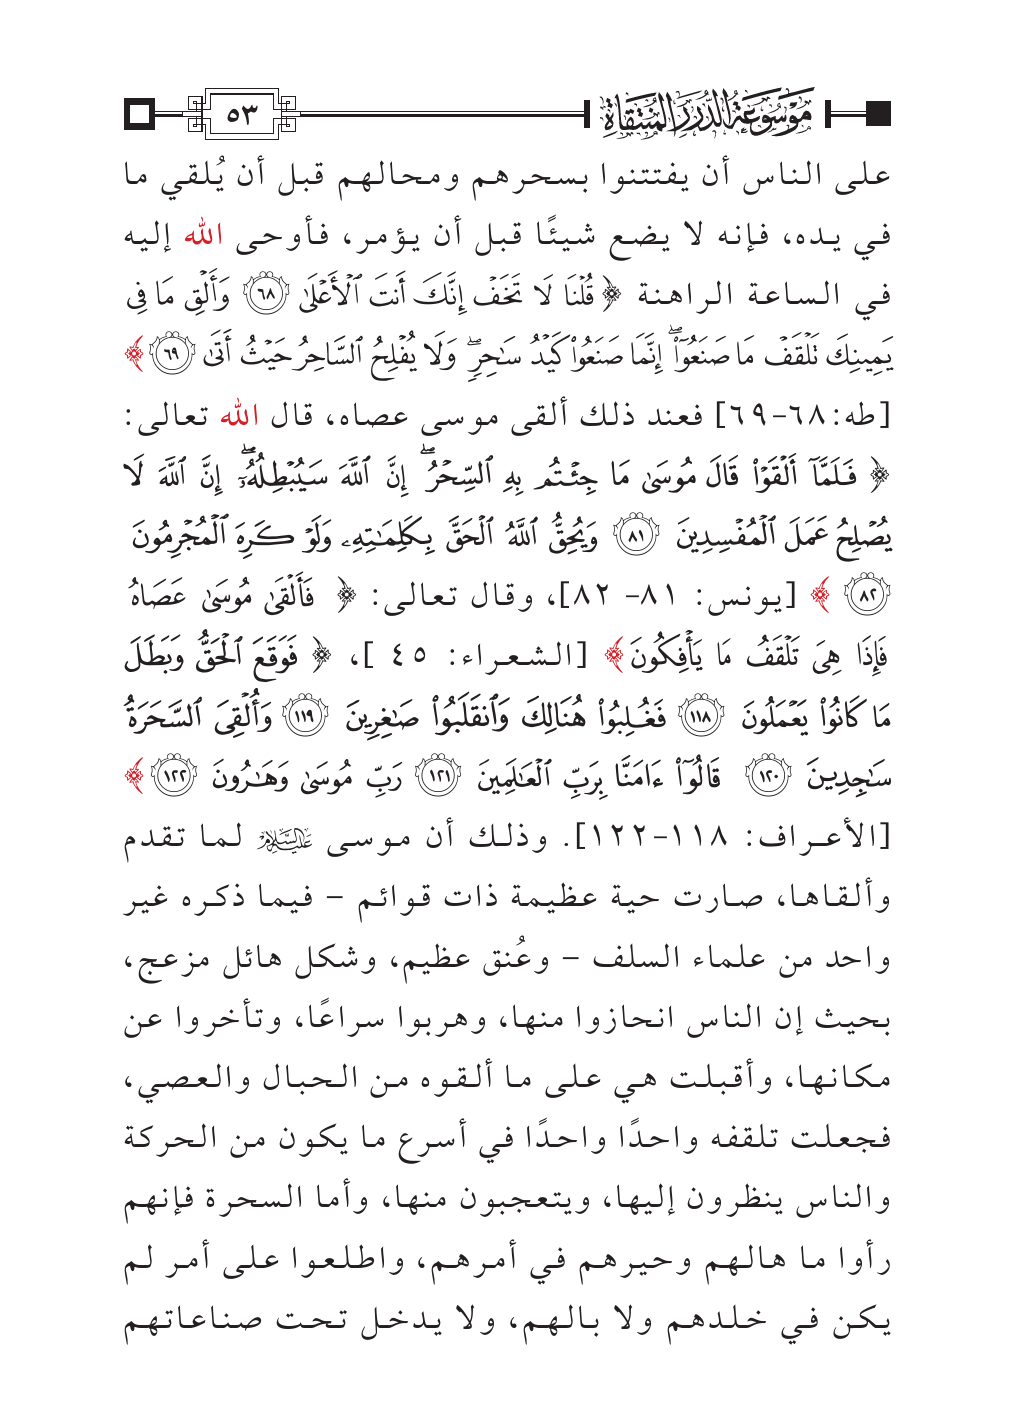 موسوعة الدرر المنتقاة ٥٣
على الناس أن يفتتنوا بسحرهم ومحالهم قبل أن يُلقي ما
في يده، فإنه لا يضع شيئًا قبل أن يؤمر، فأوحى الله إليه
في الساعة الراهنة ﴿ قُلْنَا لَا تَخَفْ إِنَّكَ أَنتَ ٱلْأَعْلَىٰ ٦٨ وَأَلْقِ مَا فِى
يَمِينِكَ تَلْقَفْ مَا صَنَعُوٓا۟ ۖ إِنَّمَا صَنَعُوا۟ كَيْدُ سَـٰحِرٍ ۖ وَلَا يُفْلِحُ ٱلسَّاحِرُ حَيْثُ أَتَىٰ ٦٩ ﴾
[طه:٦٨-٦٩] فعند ذلك ألقى موسى عصاه، قال الله تعالى:
﴿ فَلَمَّآ أَلْقَوْا۟ قَالَ مُوسَىٰ مَا جِئْتُم بِهِ ٱلسِّحْرُ ۖ إِنَّ ٱللَّهَ سَيُبْطِلُهُۥٓ ۖ إِنَّ ٱللَّهَ لَا
يُصْلِحُ عَمَلَ ٱلْمُفْسِدِينَ ٨١ وَيُحِقُّ ٱللَّهُ ٱلْحَقَّ بِكَلِمَـٰتِهِۦ وَلَوْ كَرِهَ ٱلْمُجْرِمُونَ
٨٢ ﴾ [يونس: ٨١- ٨٢]، وقال تعالى: ﴿ فَأَلْقَىٰ مُوسَىٰ عَصَاهُ
فَإِذَا هِىَ تَلْقَفُ مَا يَأْفِكُونَ ﴾ [الشعراء: ٤٥ ]، ﴿ فَوَقَعَ ٱلْحَقُّ وَبَطَلَ
مَا كَانُوا۟ يَعْمَلُونَ ١١٨ فَغُلِبُوا۟ هُنَالِكَ وَٱنقَلَبُوا۟ صَـٰغِرِينَ ١١٩ وَأُلْقِىَ ٱلسَّحَرَةُ
سَـٰجِدِينَ ١٢٠ قَالُوٓا۟ ءَامَنَّا بِرَبِّ ٱلْعَـٰلَمِينَ ١٢١ رَبِّ مُوسَىٰ وَهَـٰرُونَ ١٢٢ ﴾
[الأعراف: ١١٨-١٢٢]. وذلك أن موسى عليه السلام لما تقدم
وألقاها، صارت حية عظيمة ذات قوائم – فيما ذكره غير
واحد من علماء السلف – وعُنق عظيم، وشكل هائل مزعج،
بحيث إن الناس انحازوا منها، وهربوا سراعًا، وتأخروا عن
مكانها، وأقبلت هي على ما ألقوه من الحبال والعصي،
فجعلت تلقفه واحدًا واحدًا في أسرع ما يكون من الحركة
والناس ينظرون إليها، ويتعجبون منها، وأما السحرة فإنهم
رأوا ما هالهم وحيرهم في أمرهم، واطلعوا على أمر لم
يكن في خلدهم ولا بالهم، ولا يدخل تحت صناعاتهم